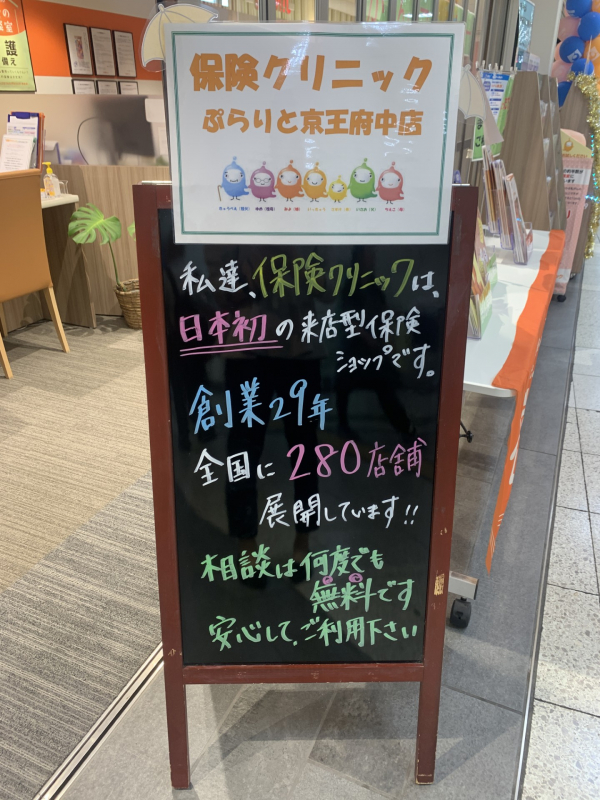 保険クリニック
ぷらりと京王府中店
私達、保険クリニックは、
日本初の来店型保険
ショップです。
創業29年
全国に280店舗
展開しています!!
相談は何度でも
無料です
安心して、ご利用下さい